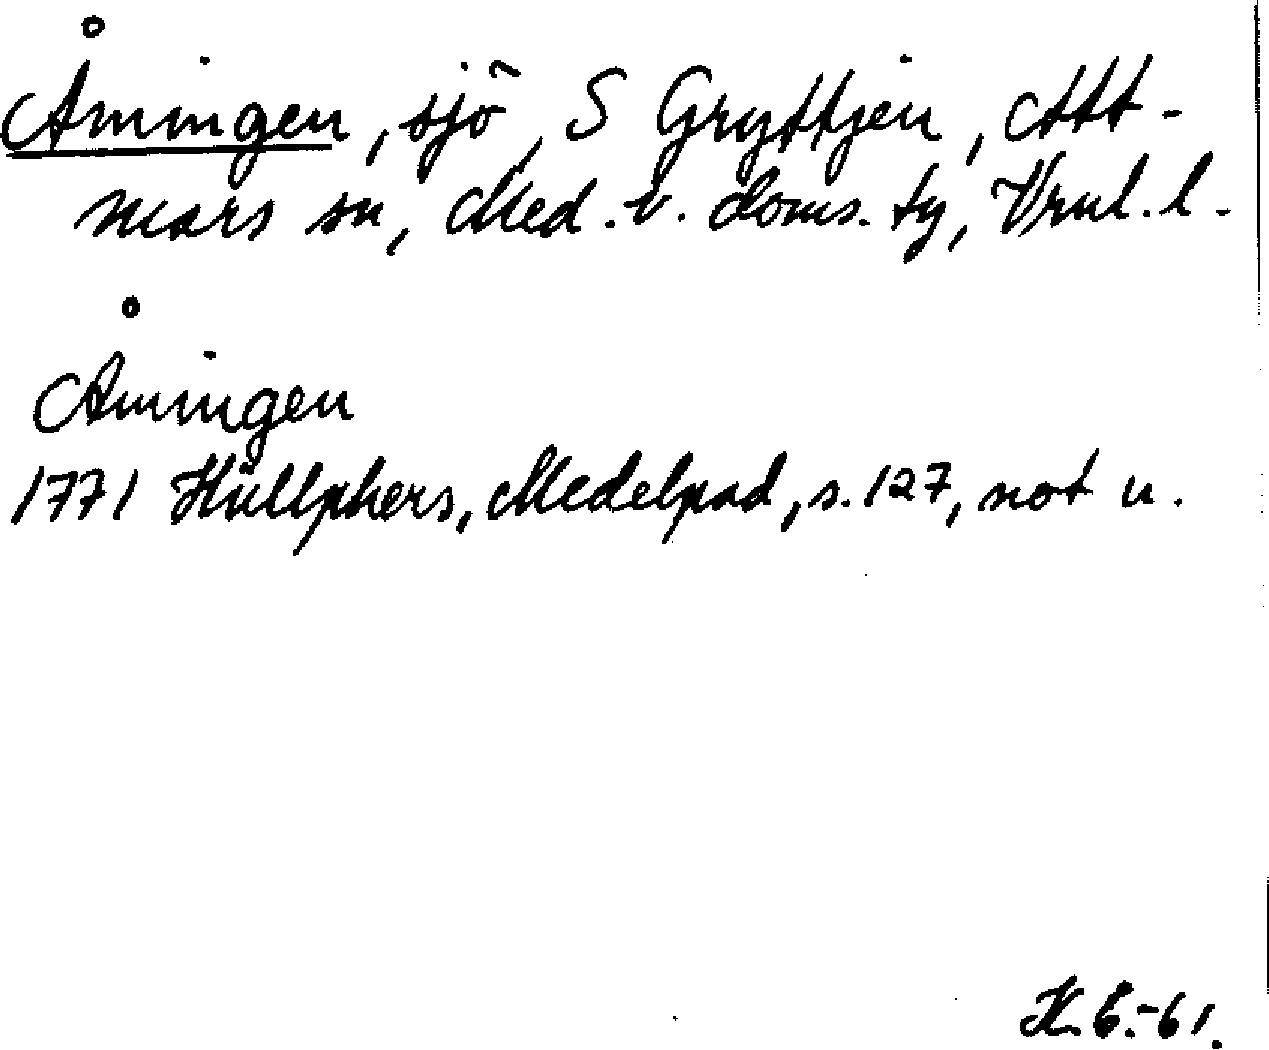 Åmingen, sjö, S Gryttjen, Att-
mars sn, Med. v. doms. tg, Vrnl. l.
Åmingen
1771 Hüllphers, Medelpad, s. 127, not u.
K.B.-61.